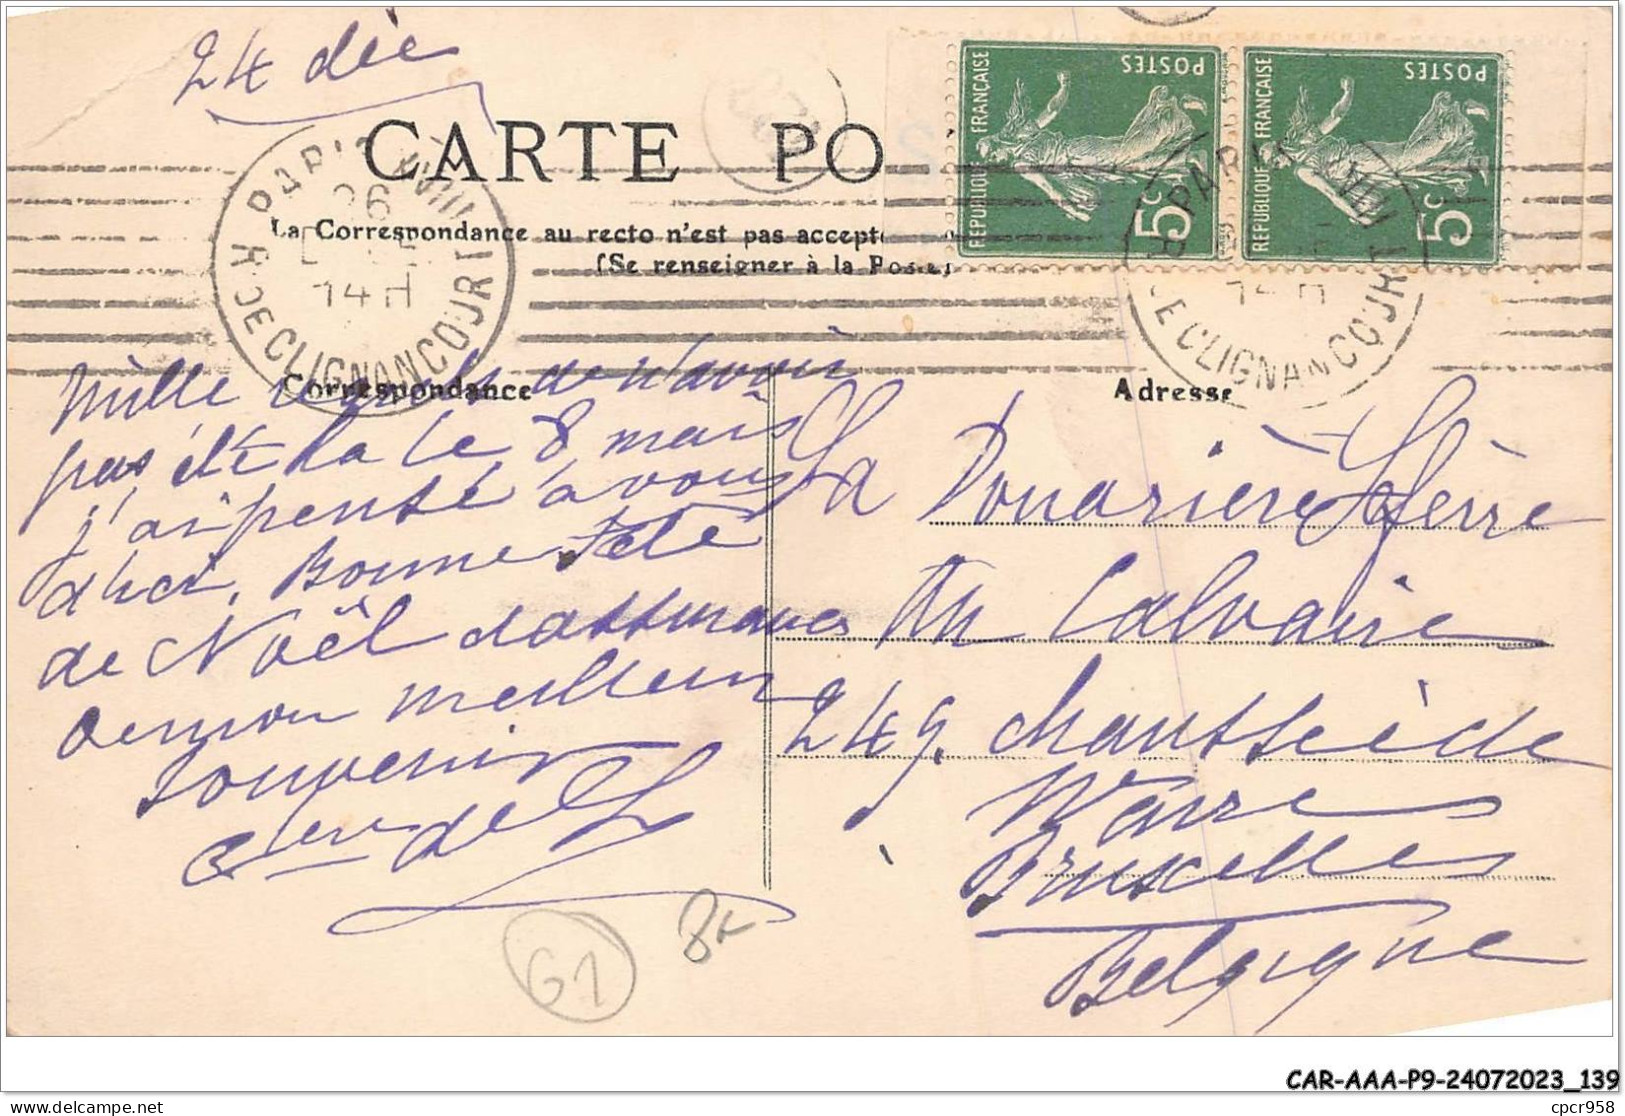 24 déc
CARTE PO
La Correspondance au recto n'est pas accepté
(Se renseigner à la Poste)
PARIS XVIII
26
14 H
R. DE CLIGNANCOURT
REPUBLIQUE FRANÇAISE
POSTES
5c
REPUBLIQUE FRANÇAISE
POSTES
5c
PARIS XVIII
14 H
DE CLIGNANCOURT
Correspondance
Adresse
Mille regrets de n'avoir
pas été là le 8 mais
j'ai pensé à vous
Bonne fête
de Noël
de mon meilleur
souvenir
La Douarière
du Calvaire
249. Chaussée de
Wavre
Bruxelles
Belgique
G1
8k
CAR-AAA-P9-24072023_139
delcampe.net
cpcr958